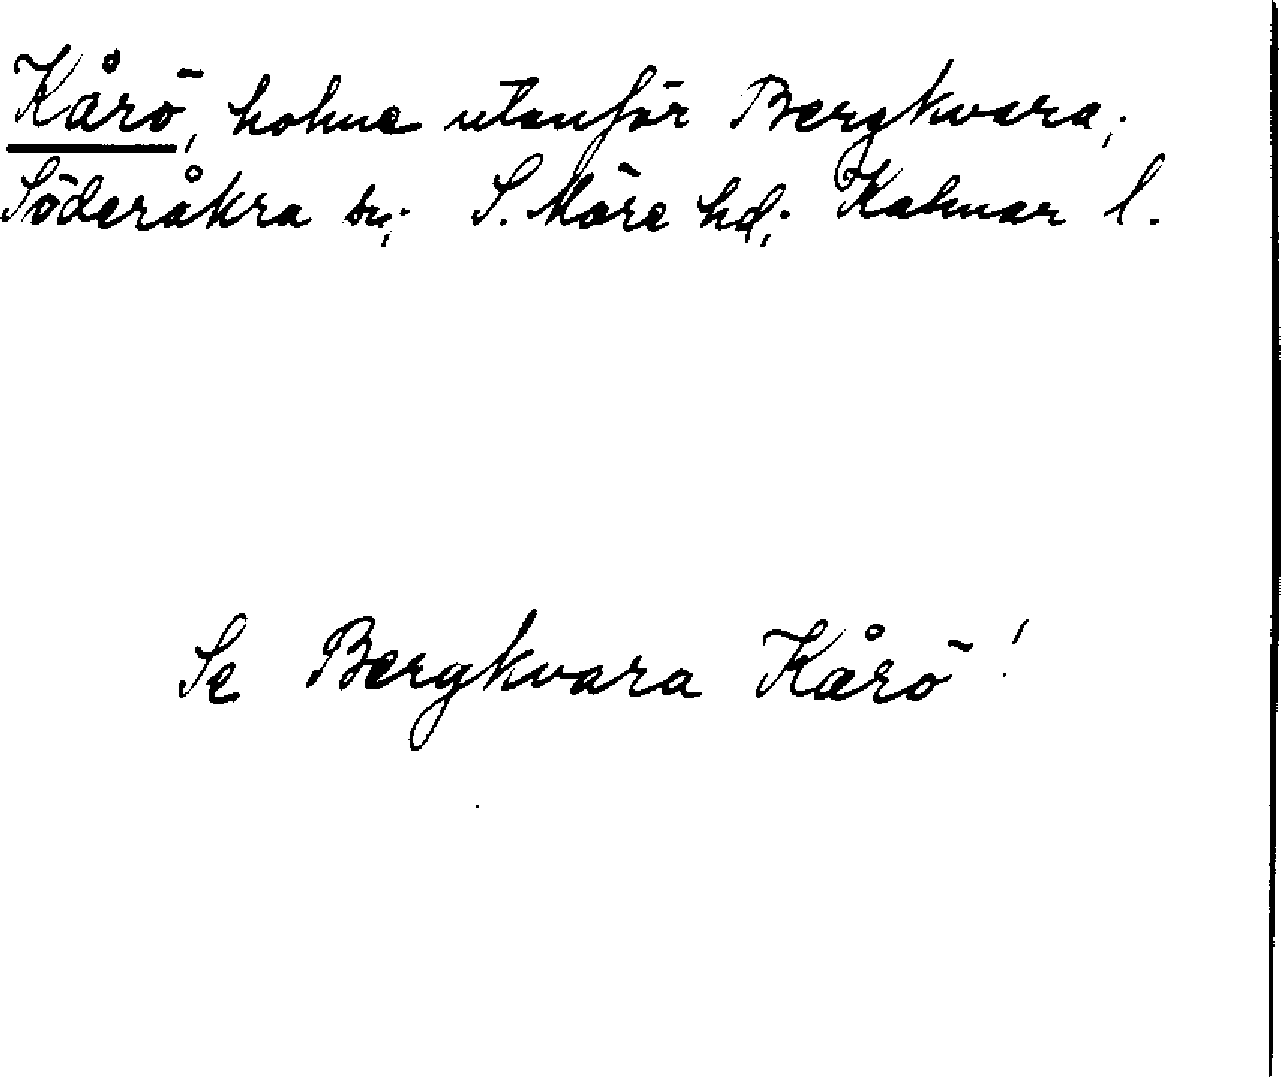 Kårö, holme utanför Bergkvara,
Söderåkra sn, S. Möre hd, Kalmar l.
Se Bergkvara Kårö!